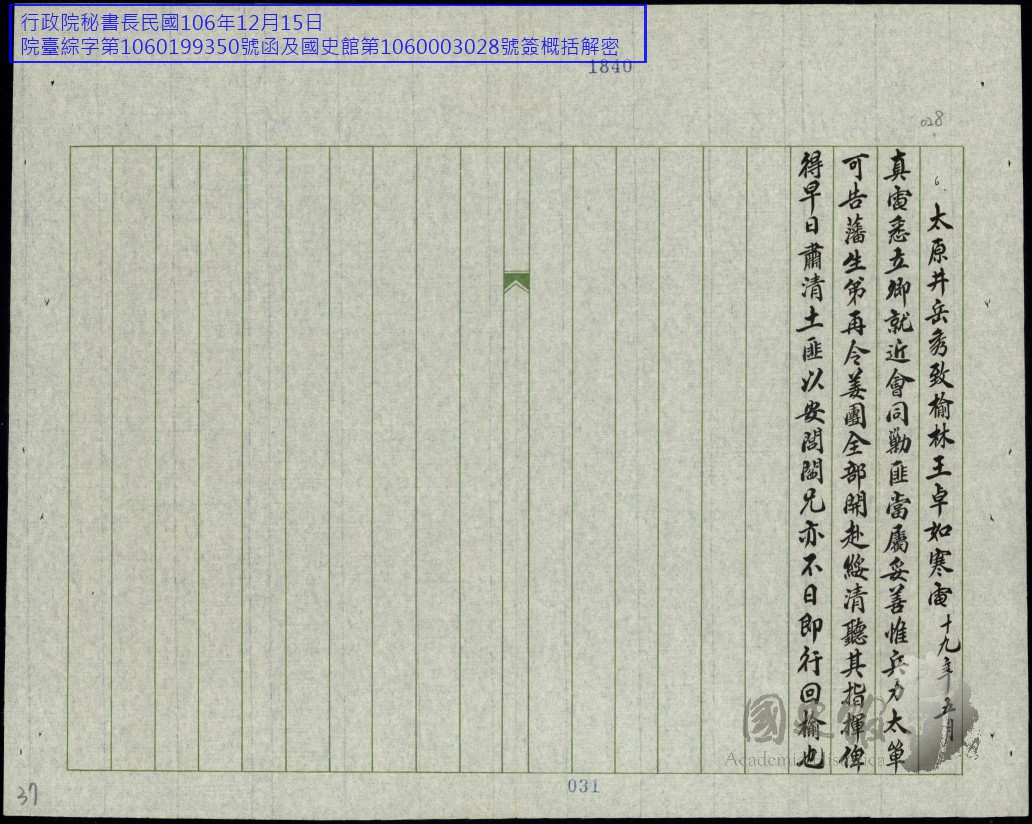 行政院秘書長民國106年12月15日
院臺綜字第1060199350號函及國史館第1060003028號簽概括解密
1840
028
6、太原井岳秀致榆林王卓如寒電 十九年五月
真電悉立卿就近會同勦匪當屬妥善惟兵力太單
可告藩生第再令姜團全部開赴綏清聽其指揮俾
得早日肅清土匪以安閭閻兄亦不日即行回榆也
國史館
Academia Historica
031
37